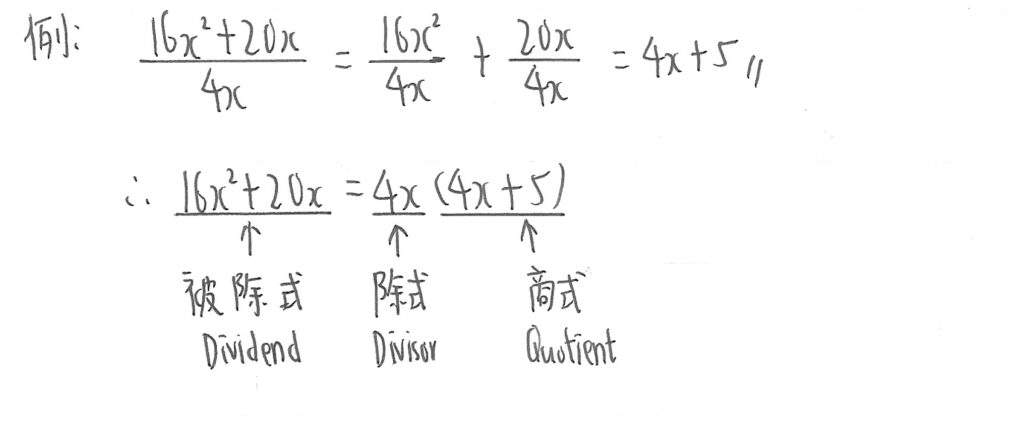 例: (16x²+20x)/(4x) = (16x²)/(4x) + (20x)/(4x) = 4x+5 //
∴ 16x²+20x = 4x (4x+5)
↑ ↑ ↑
被除式 除式 商式
Dividend Divisor Quotient